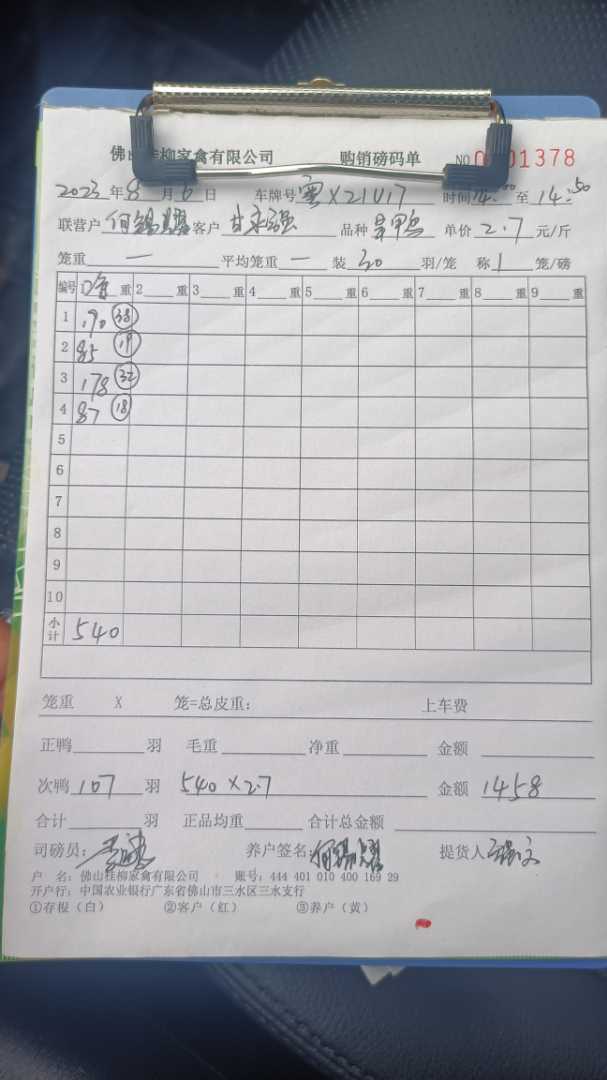 佛山桂柳家禽有限公司 购销磅码单 NO 0001378
2023年8月6日 车牌号粤X21U17 时间14:00至14:50
联营户何锡耀客户甘永强 品种 单价2.7元/斤
笼重 一 平均笼重 一 装30羽/笼 称1笼/磅
编号 1 重 2 重 3 重 4 重 5 重 6 重 7 重 8 重 9 重
1 190 38
2 85 19
3 178 32
4 87 18
5
6
7
8
9
10
小计 540
笼重 X 笼=总皮重: 上车费
正鸭 羽 毛重 净重 金额
次鸭107羽 540×2.7 金额1458
合计 羽 正品均重 合计总金额
司磅员: 养户签名:何锡耀 提货人
户 名:佛山桂柳家禽有限公司 账号:444 401 010 400 169 29
开户行:中国农业银行广东省佛山市三水区三水支行
①存根(白) ②客户(红) ③养户(黄)